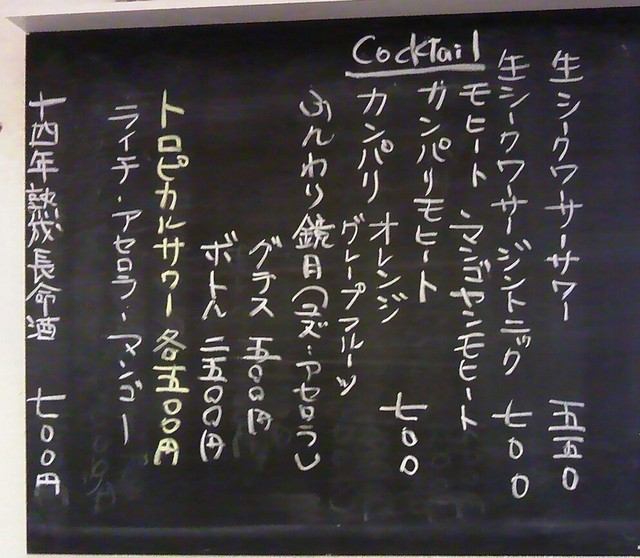 生シークワーサーサワー 五五〇
生シークワーサージントニック 七〇〇
Cocktail
モヒート・マンゴヤンモヒート
カンパリモヒート
カンパリ オレンジ 七〇〇
グレープフルーツ
ふんわり鏡月(ユズ・アセロラ)
グラス 五〇〇円
ボトル 二五〇〇円
トロピカルサワー 各五〇〇円
ライチ・アセロラ・マンゴー
十四年熟成長命酒 七〇〇円